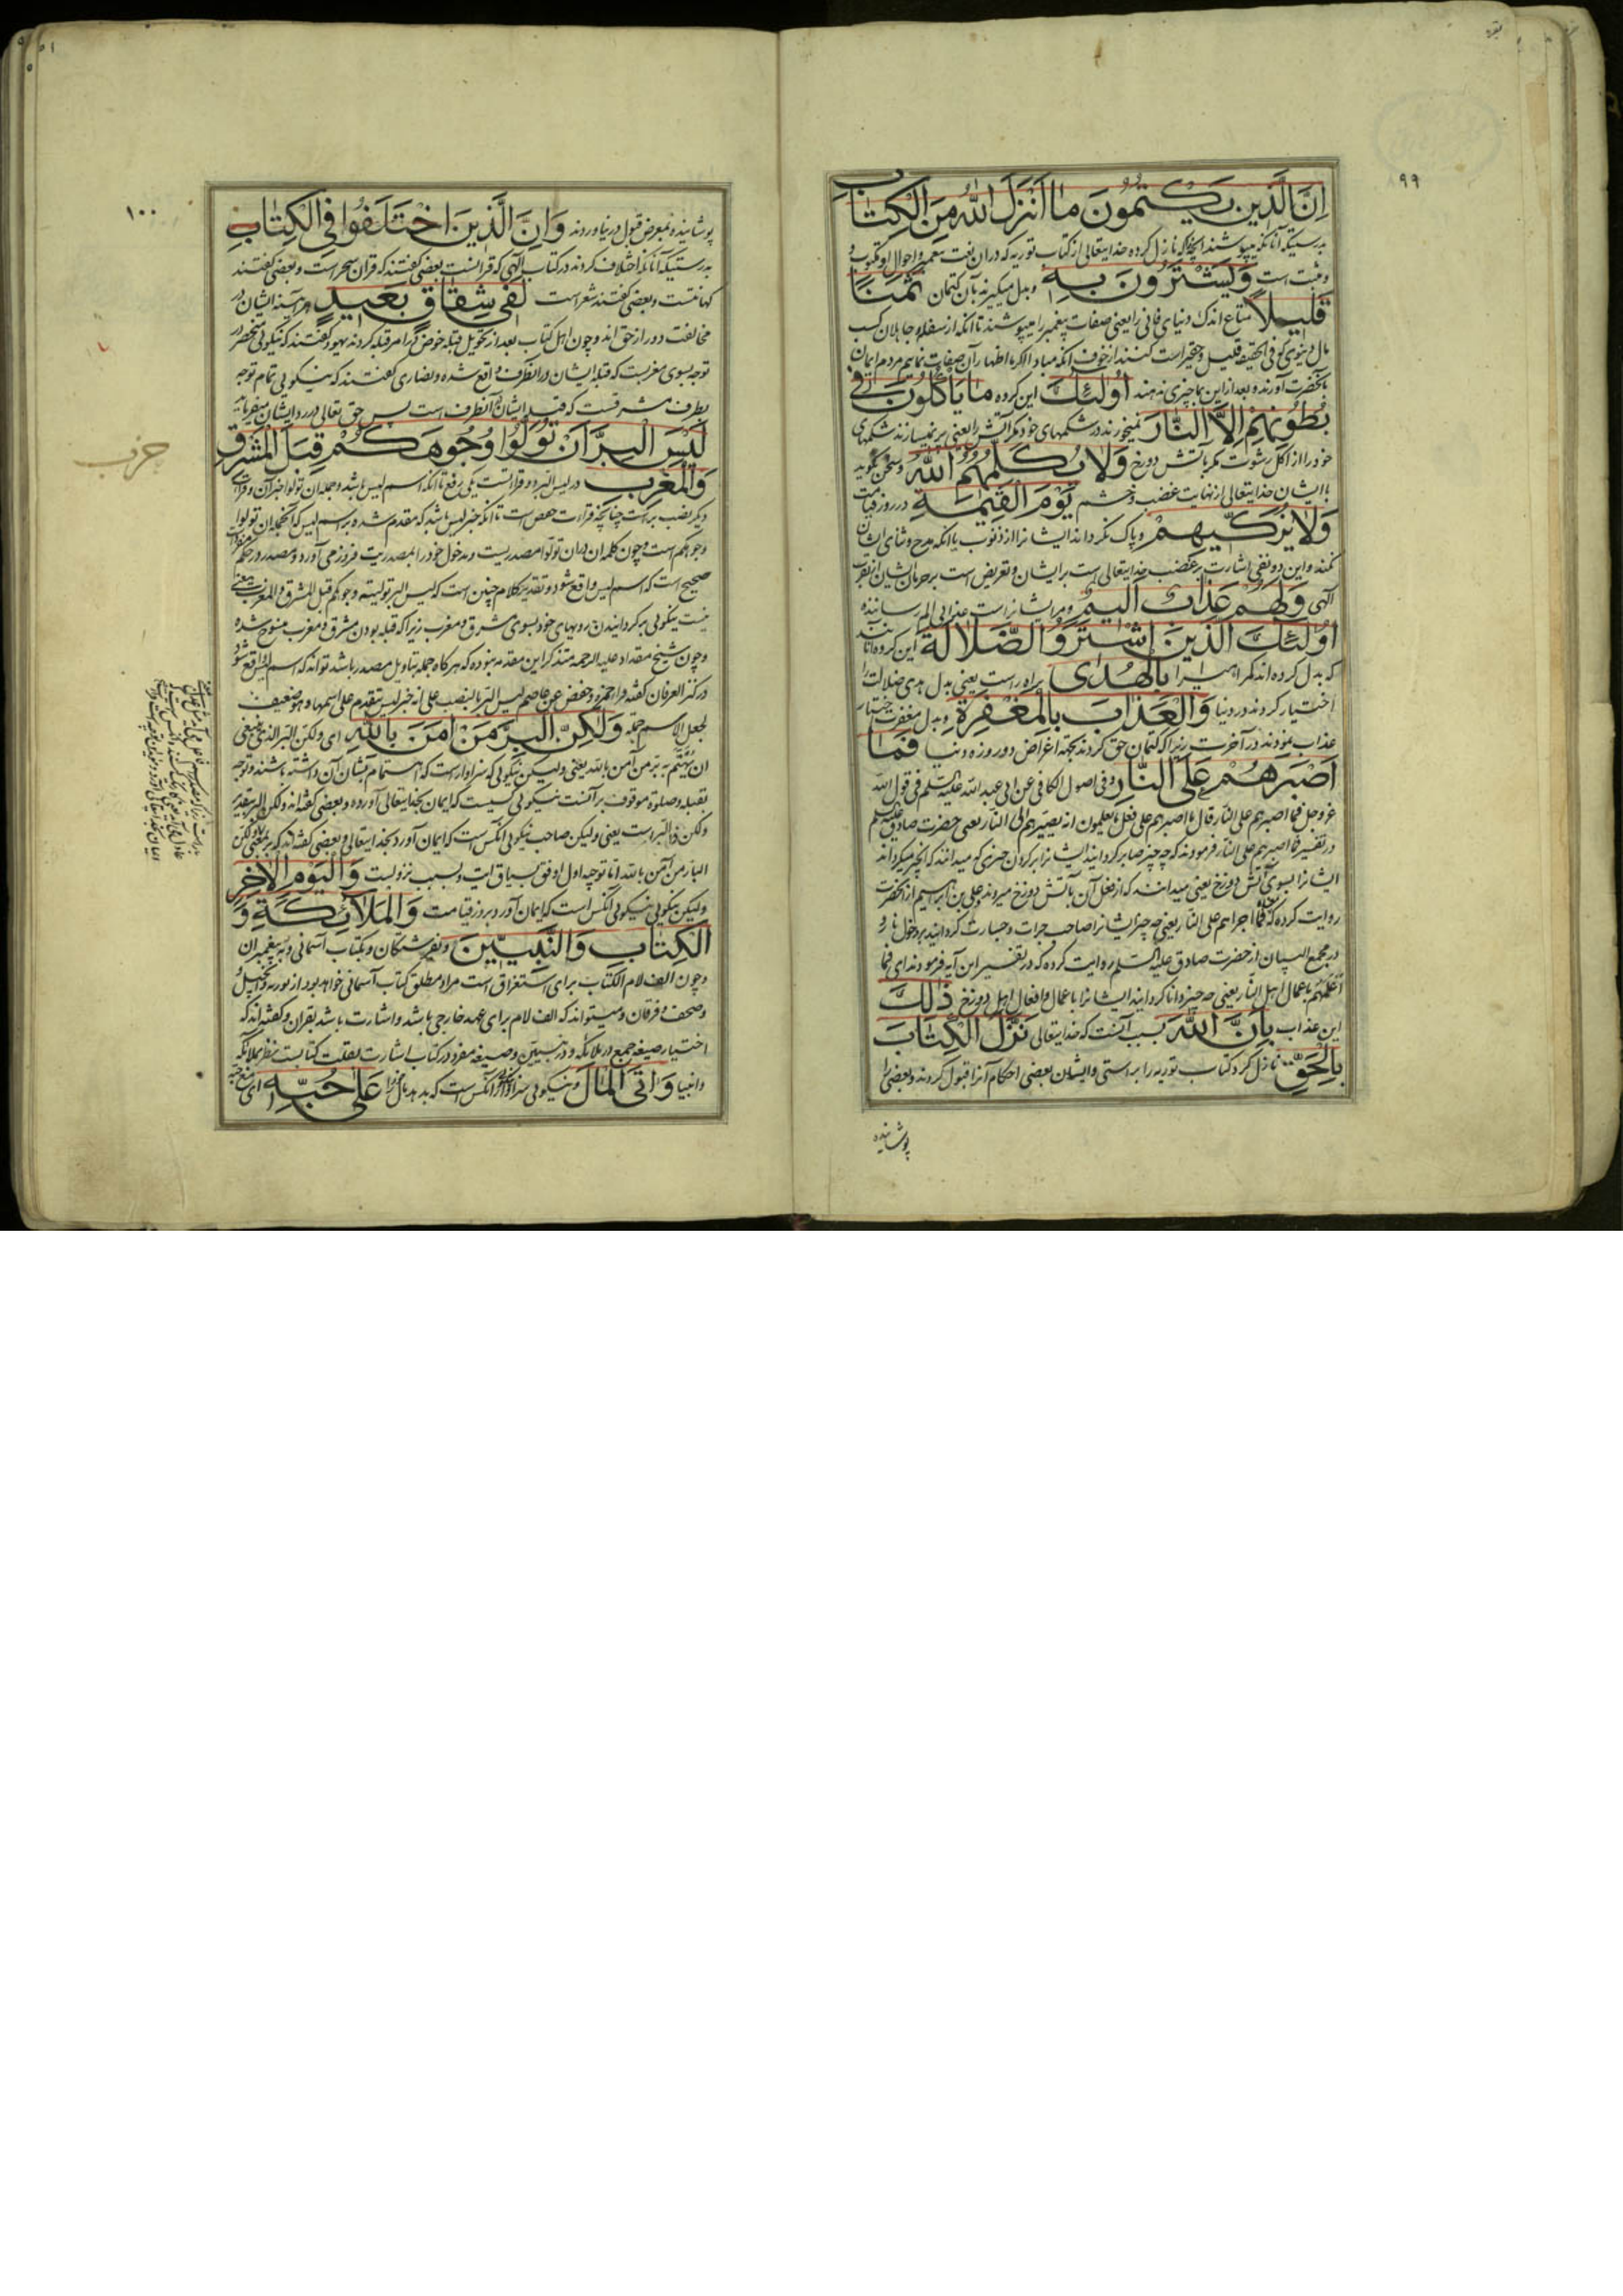 ۹۹
بقره
اِنَّ الَّذينَ يَكْتُمُونَ ما اَنْزَلَ اللهُ مِنَ الْكِتابِ
بدرستیکه آنانکه میپوشند آنچه که نازل کرده خدایتعالی از کتاب توریه که در آن نعت پیغمبر و احوال او مکتوب و
و مثبت است وَيَشْتَرُونَ بِهِ و بدل میگیرند بآن کتمان ثَمَنًا
قَليلاً متاع اندک دنیای فانی را یعنی صفات پیغمبر را میپوشند تا آنکه از سفله و جاهلان کسب
مال دنیوی که فی الحقیقه قلیل و حقیر است کنند از خوف آنکه مبادا اگر ما اظهار آن صفات نمائیم مردم ایمان
بآنحضرت آورند و بعد از این بما چیزی ندهند اُولئِكَ این کرده ما يَأْكُلُونَ فى
بُطُونِهِمْ اِلاَّ النّارَ نمیخورند در شکمهای خود مگر آتش را یعنی پر نمیسازند شکمهای
خود را از اکل رشوت مگر بآتش دوزخ وَلا يُكَلِّمُهُمُ اللهُ و سخن نگوید
با ایشان خدایتعالی از نهایت غضب و خشم يَوْمَ الْقِيمَةِ در روز قیامت
وَلا يُزَكّيهِمْ و پاک نگرداند ایشانرا از ذنوب یا آنکه مدح و ثنای ایشان
نکند و این دو نفی اشارت بر غضب خدایتعالی است بر ایشان و تعریض است بر حرمان ایشان از تقرب
آلهی وَلَهُمْ عَذابٌ اَليمٌ و مر ایشانراست عذابی الم رساننده
اُولئِكَ الَّذينَ اشْتَرَوُا الضَّلالَةَ این گروه آنانند
که بدل کرده اند گمراهی را بِالْهُدى براه راست یعنی بدل هدی ضلالت را
اختیار کردند در دنیا وَالْعَذابَ بِالْمَغْفِرَةِ و بدل مغفرت اختیار
عذاب نمودند در آخرت زیرا که کتمان حق کردند بجهة اغراض دو روزه دنیا فَما
اَصْبَرَهُمْ عَلَى النّارِ و فی اصول الکافی عن ابی عبد الله علیه السلم فی قول الله
عز و جل فما اصبرهم علی النار قال ما اصبرهم علی فعل ما یعلمون انه یصیرهم الی النار یعنی حضرت صادق علیه السلم
در تفسیر فما اصبرهم علی النار فرمودند که چه چیز صابر گردانید ایشانرا بر کردن چیزی که میدانند که آنچیز میگرداند
ایشانرا بسوی آتش دوزخ یعنی میدانند که از فعل آن بآتش دوزخ میروند و علی بن ابراهیم از آنحضرت
روایت کرده که فما اجراهم علی النار یعنی چه چیز ایشانرا صاحب جرات و جسارت گردانید بر دخول نار و
در مجمع البیان از حضرت صادق علیه السلم روایت کرده که در تفسیر این آیه فرمودند ای فما
اعملهم باعمال اهل النار یعنی چه چیز دانا گردانید ایشانرا باعمال و افعال اهل دوزخ ذلِكَ
این عذاب بِاَنَّ اللهَ بسبب آنست که خدایتعالی نَزَّلَ الْكِتابَ
بِالْحَقِّ نازل کرد کتاب توریه را براستی و ایشان بعضی احکام آنرا قبول کردند و بعضی را
پوشانیده
۱۰۰
پوشانیده و بمعرض قبول در نیاوردند وَاِنَّ الَّذينَ اخْتَلَفُوا فِى الْكِتابِ
بدرستیکه آنانکه اختلاف کردند در کتاب آلهی که قرانست بعضی گفتند که قران سحر است و بعضی گفتند
کهانتست و بعضی گفتند شعر است لَفى شِقاقٍ بَعيدٍ هر آینه ایشان در
مخالفت دور از حق اند و چون اهل کتاب بعد از تحویل قبله خوض در امر قبله کردند یهود گفتند که نیکوئی منحصر در
توجه بسوی مغربست که قبله ایشان در آنطرف واقع شده و نصاری گفتند که نیکوئی تمام توجه
بطرف مشرقست که قبله ایشان در آنطرف است پس حق تعالی در رد ایشان میفرماید
لَيْسَ الْبِرَّ اَنْ تُوَلُّوا وُجُوهَكُمْ قِبَلَ الْمَشْرِقِ
حزب
وَالْمَغْرِبِ در لیس البر دو قرائتست یکی رفع تا آنکه اسم لیس باشد و جمله ان تولوا خبر آن و قرائت
دیگر نصب بر است چنانچه قراءت حفص است تا آنکه خبر لیس باشد که مقدم شده بر اسم لیس که آنجمله ان تولوا
وجوهکم است و چون کلمه ان در ان تولوا مصدریست و مدخول خود را بمصدریت فرود می آورد و مصدر در حکم مفرد است
صحیح است که اسم لیس واقع شود و تقدیر کلام چنین است که لیس البر تولیته وجوهکم قبل المشرق و المغرب یعنی
نیست نیکوئی بر گردانیدن رویهای خود بسوی مشرق و مغرب زیرا که قبله بودن مشرق و مغرب منسوخ شده
و چون شیخ مقداد علیه الرحمه متذکر این مقدمه نبوده که هر گاه جمله بتاویل مصدر باشد تواند که اسم لیس واقع شود
در کنز العرفان گفته قرا حمزة و حفص عن عاصم لیس البر بالنصب علی انه خبر لیس تقدم علی اسمها و هو ضعیف
لجعل الاسم جملة وَلكِنَّ الْبِرَّ مَنْ امَنَ بِاللهِ ای ولکن البر الذی ینبغی
ان یهتم به بر من آمن بالله یعنی ولیکن نیکوئی که سزاوار است که اهتمام بشان آن داشته باشند و توجه
بقبله و صلوة موقوف بر آنست نیکوئی کسیست که ایمان بخدایتعالی آورده و بعضی گفته اند ولکن البر بتقدیر
ولکن ذا البر است یعنی ولیکن صاحب نیکوئی آنکس است که ایمان آورد بخدایتعالی و بعضی گفته اند که بر بمعنی بار ولکن
البار من آمن بالله اما توجیه اول اوفق بسیاق ایت و بسبب نزولست وَالْيَوْمِ الاخِرِ
ولیکن نیکوئی نیکوئی آنکس است که ایمان آورد بروز قیامت وَالْمَلآئِكَةِ وَ
الْكِتابِ وَالنَّبِيّينَ و بفرشتگان و بکتاب آسمانی و به پیغمبران
و چون الف لام الکتاب برای استغراق است مراد مطلق کتاب آسمانی خواهد بود از توریه و انجیل
و صحف و فرقان و میتواند که الف لام برای عهد خارجی باشد و اشارت باشد بقران و گفته اند که
اختیار صیغه جمع در ملائکه و در نبیین و صیغه مفرد در کتاب اشارت بقلت کتابست نظر بملائکه
و انبیا وَاتَى الْمالَ و نیکوئی سزاوار آنکس است که بدهد مال را عَلى حُبِّهِ ای مع حبه